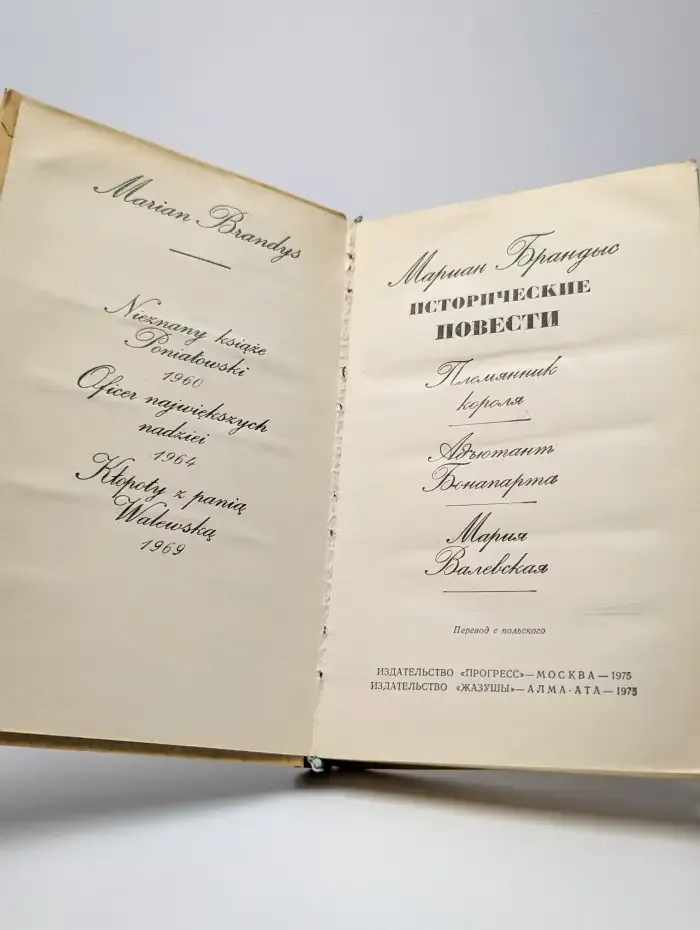 Marian Brandys
Nieznany książe
Poniatowski
1960
Oficer największych
nadziei
1964
Kłopoty z panią
Walewską
1969
Мариан Брандыс
ИСТОРИЧЕСКИЕ
ПОВЕСТИ
Племянник
короля
Адъютант
Бонапарта
Мария
Валевская
Перевод с польского
ИЗДАТЕЛЬСТВО «ПРОГРЕСС»—МОСКВА—1975
ИЗДАТЕЛЬСТВО «ЖАЗУШЫ»—АЛМА-АТА—1975